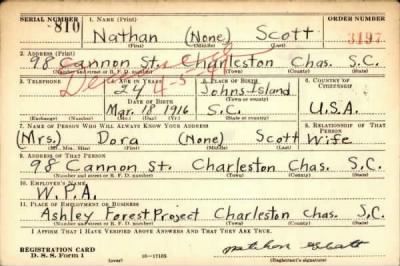 SERIAL NUMBER
810
1. NAME (Print)
ORDER NUMBER
Nathan (None) Scott
3197
(First) (Middle) (Last)
2. ADDRESS (Print)
98 Cannon St. Charleston Chas. S.C.
(Number and street or R. F. D. number) (Town) (County) (State)
3. TELEPHONE
4. AGE IN YEARS
24
5. PLACE OF BIRTH
Johns Island
(Town or county)
6. COUNTRY OF CITIZENSHIP
DATE OF BIRTH
Mar. 18 1916
S.C.
U.S.A.
(Exchange) (Number) (Mo.) (Day) (Yr.) (State or country)
7. NAME OF PERSON WHO WILL ALWAYS KNOW YOUR ADDRESS
8. RELATIONSHIP OF THAT PERSON
(Mrs.) Dora (None) Scott Wife
(Mr., Mrs., Miss) (First) (Middle) (Last)
9. ADDRESS OF THAT PERSON
98 Cannon St. Charleston Chas. S.C.
(Number and street or R. F. D. number) (Town) (County) (State)
10. EMPLOYER'S NAME
W.P.A.
11. PLACE OF EMPLOYMENT OR BUSINESS
Ashley Forest Project Charleston Chas. S.C.
(Number and street or R. F. D. number) (Town) (County) (State)
I AFFIRM THAT I HAVE VERIFIED ABOVE ANSWERS AND THAT THEY ARE TRUE.
REGISTRATION CARD
D. S. S. Form 1
(over)